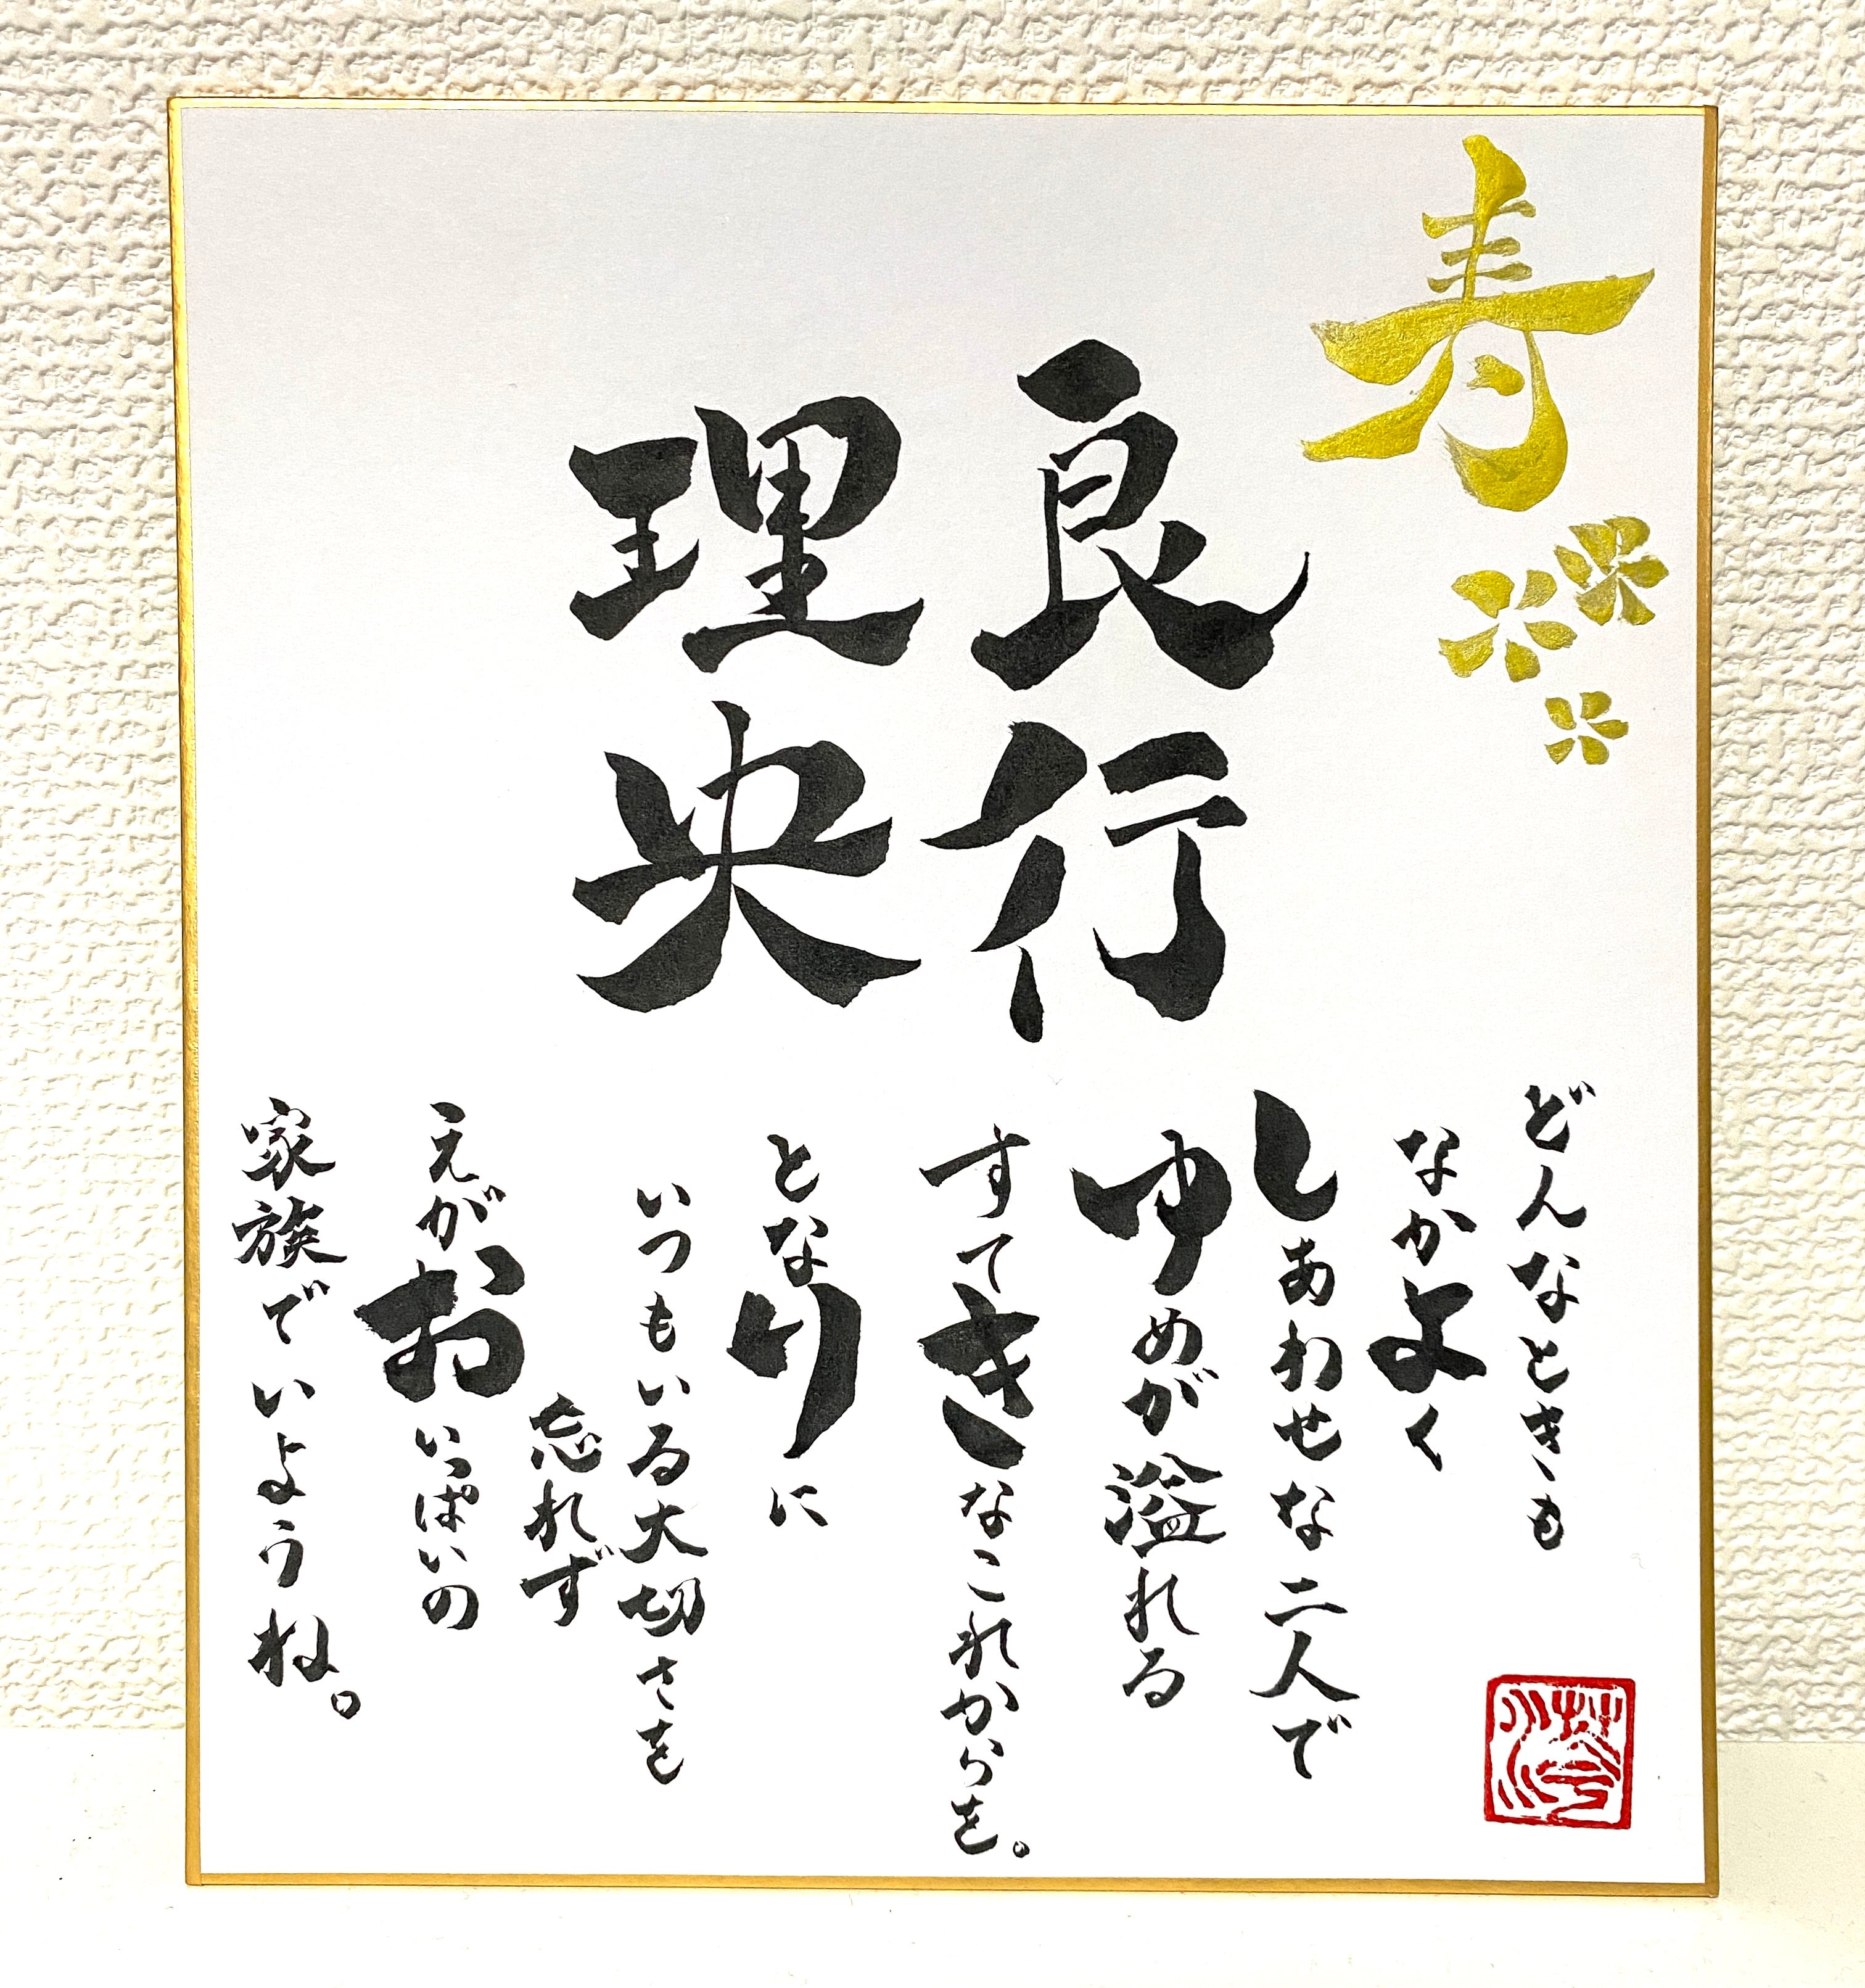 寿
良行
理央
どんなときも
なかよく
しあわせな二人で
ゆめが溢れる
すてきなこれからを。
となりに
いつもいる大切さを
忘れず
えがおいっぱいの
家族でいようね。